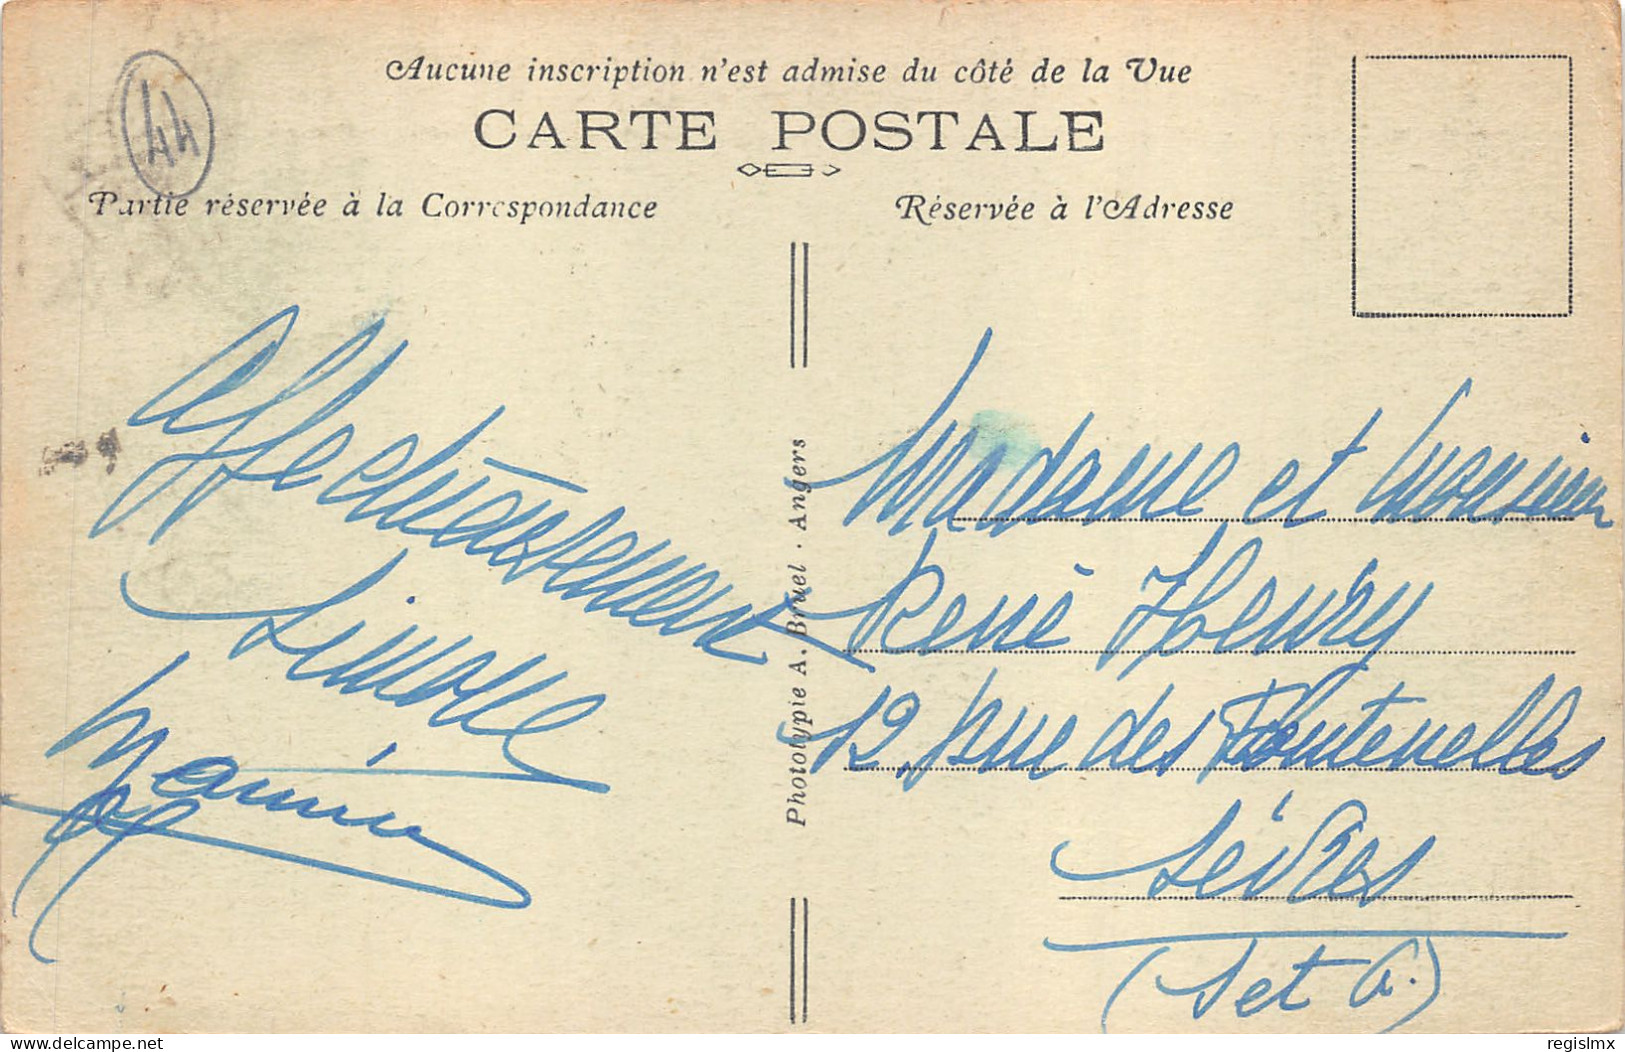 Aucune inscription n'est admise du côté de la Vue
CARTE POSTALE
44
Partie réservée à la Correspondance
Réservée à l'Adresse
Affectueusement
Simone
Phototypie A. Bruel . Angers
Madame et Monsieur
René Henry
12, rue des Fontenelles
Sèvres
(S et O.)
delcampe.net
regislmx